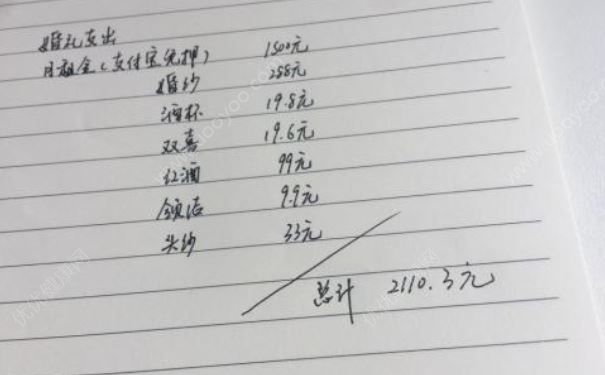 婚礼支出
月租金(支付宝免押) 1500元
婚纱 258元
酒杯 19.8元
双喜 19.6元
红酒 99元
领结 9.9元
头纱 33元
总计 2110.3元
优优健康网
www.uooyoo.com